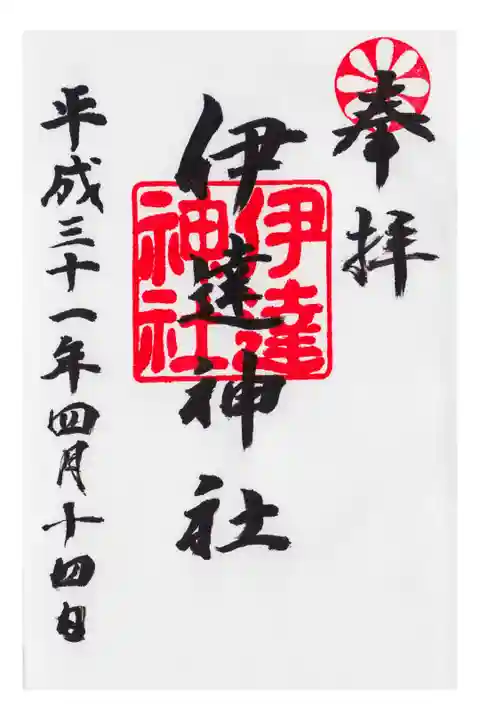 奉拝
伊達神社
伊達神社
平成三十一年四月十四日